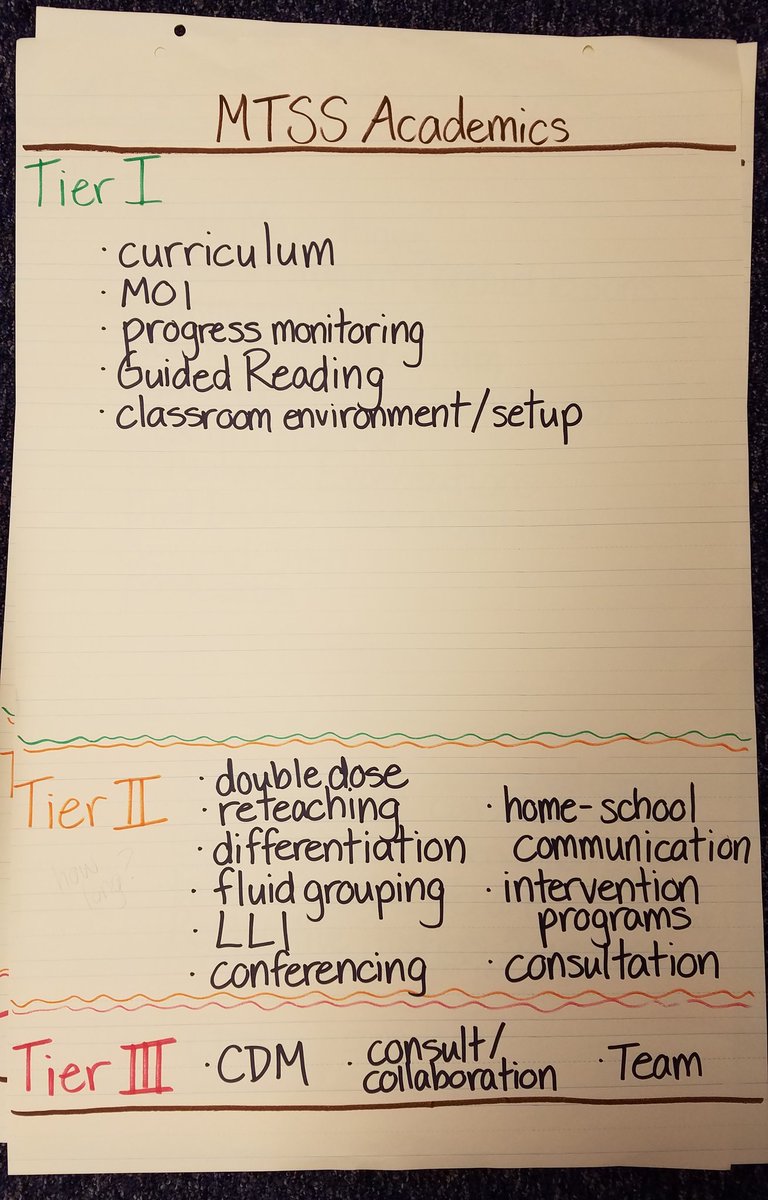 MTSS Academics
Tier I
· curriculum
· MOI
· progress monitoring
· Guided Reading
· classroom environment/setup
Tier II
· double dose
· reteaching
· differentiation
· fluid grouping
· LLI
· conferencing
· home-school
communication
· intervention
programs
· consultation
Tier III
· CDM
· consult/
collaboration
· Team